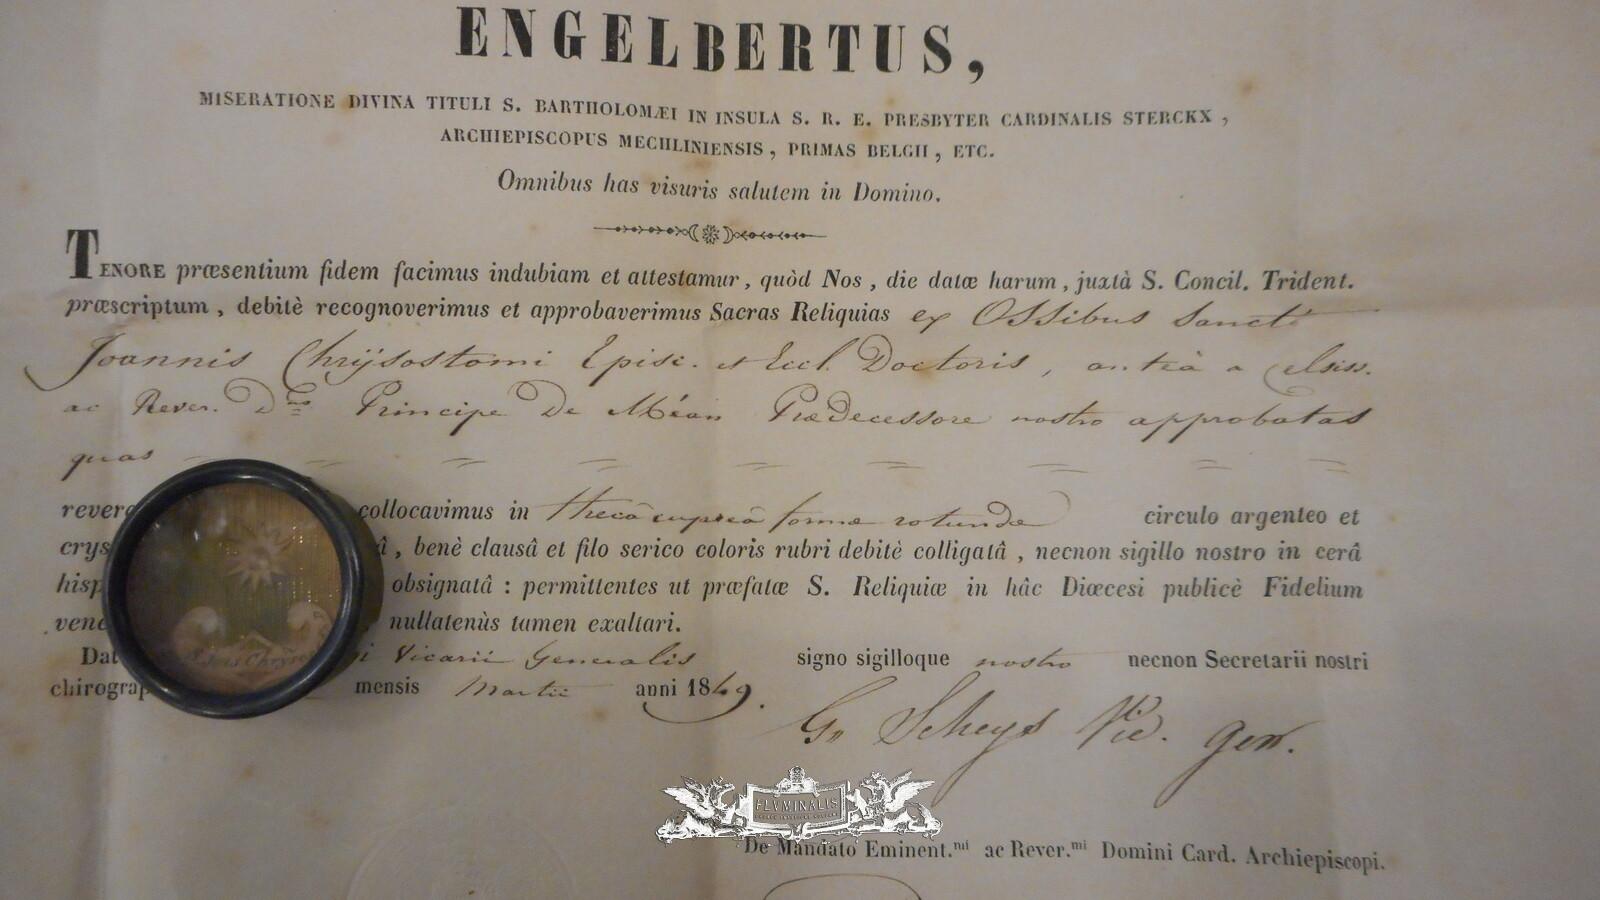 ENGELBERTUS,
MISERATIONE DIVINA TITULI S. BARTHOLOMÆI IN INSULA S. R. E. PRESBYTER CARDINALIS STERCKX,
ARCHIEPISCOPUS MECHLINIENSIS, PRIMAS BELGII, ETC.
Omnibus has visuris salutem in Domino.
TENORE præsentium fidem facimus indubiam et attestamur, quòd Nos, die datæ harum, juxtà S. Concil. Trident.
præscriptum, debitè recognoverimus et approbaverimus Sacras Reliquias ex Ossibus Sancti
Joannis Chrÿsostomi Episc. et Eccl. Doctoris, anteà a Celsiss.
ac Rever. Dno Principe De Méan Prædecessore nostro approbatas
quas
rever collocavimus in thecâ cupreâ formæ rotundæ circulo argenteo et
crys â, benè clausâ et filo serico coloris rubri debitè colligatâ, necnon sigillo nostro in cerâ
hisp obsignatâ : permittentes ut præfatæ S. Reliquiæ in hâc Diœcesi publicè Fidelium
vene nullatenùs tamen exaltari.
Dat Vicarii Generalis signo sigilloque nostro necnon Secretarii nostri
chirograp mensis Martii anni 1849.
S. Jois Chrÿsos
G. Scheys Vic. gen.
FLVMINALIS
De Mandato Eminent.mi ac Rever.mi Domini Card. Archiepiscopi.